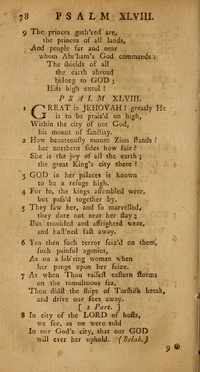 78 PSALM XLVIII.
9 The princes gath'red are,
the princes of all lands,
And people far and near
whom Abr'ham's God commands:
The shields of all
the earth abroad
belong to GOD;
He's high extol'd!
PSALM XLVIII.
1 GREAT is JEHOVAH! greatly He
is to be prais'd on high,
Within the city of our God,
his mount of sanctity.
2 How beauteously mount Zion stands!
her northern sides how fair!
She is the joy of all the earth;
the great King's city there!
3 GOD in her palaces is known
to be a refuge high.
4 For lo, the kings assembled were,
but pass'd together by.
5 They saw her, and so marvelled,
they dare not near her stay;
But troubled and affrighted were,
and hast'ned fast away.
6 Yea then such terror seiz'd on them,
such painful agonies,
As on a lab'ring woman when
her pangs upon her seize.
7 As when Thou raisest eastern storms
on the tumultuous sea,
Thou didst the ships of Tarshish break,
and drive our foes away.
[ 2 Part. ]
8 In city of the LORD of hosts,
we see, as we were told
In our God's city, that our GOD
will ever her uphold. (Selah.)
9